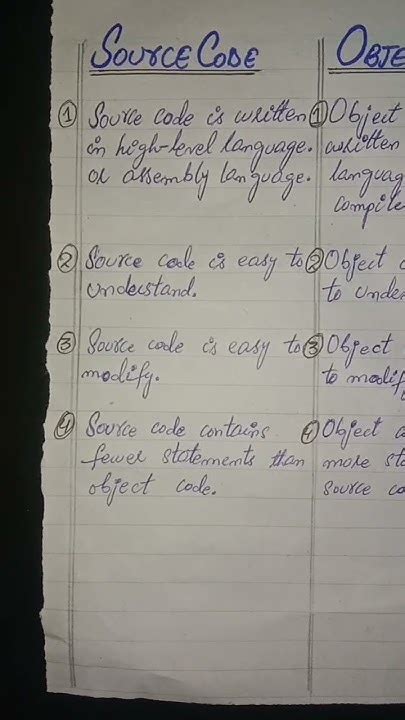 SOURCE CODE
① Source code is written
in high-level language.
or assembly language.
② Source code is easy to
understand.
③ Source code is easy to
modify.
④ Source code contains
fewer statements than
object code.
OBJE
① Object
written
language
compile
② Object c
to unde
③ Object
to modif
④ Object c
more sta
source co